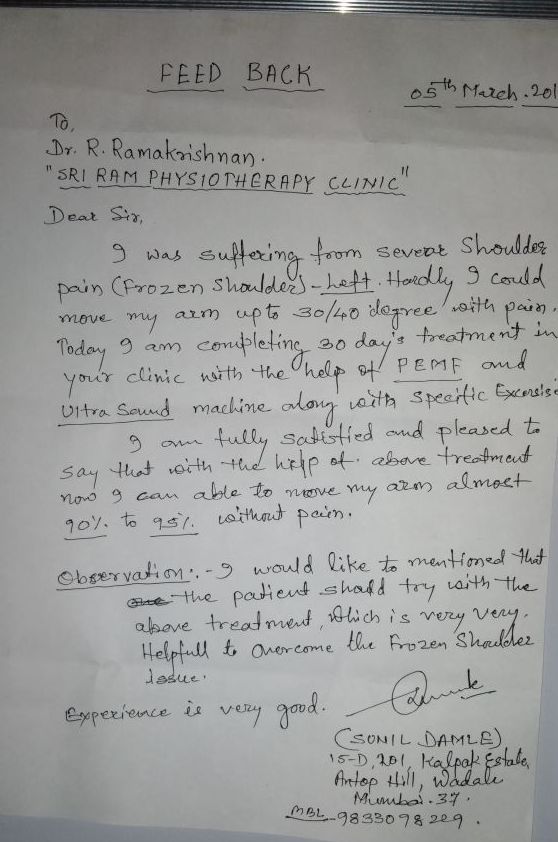 FEED BACK
05th March.201
To,
Dr. R. Ramakrishnan.
"SRI RAM PHYSIOTHERAPY CLINIC"
Dear Sir,
I was suffering from severe Shoulder
pain (Frozen Shoulder) - Left. Hardly I could
move my arm upto 30/40 degree with pain.
Today I am completing 30 day's treatment in
your clinic with the help of PEMF and
Ultra Sound machine along with specific Excersise
I am fully satistied and pleased to
say that with the help of above treatment
now I can able to move my arm almost
90% to 95% without pain.
Observation:- I would like to mentioned that
the patient should try with the
above treatment, which is very very.
Helpfull to overcome the Frozen Shoulder
issue.
Experience is very good.
(SUNIL DAMLE)
15-D, 201, Kalpak Estate,
Antop Hill, Wadala
Mumbai.37.
MBL 9833098229.